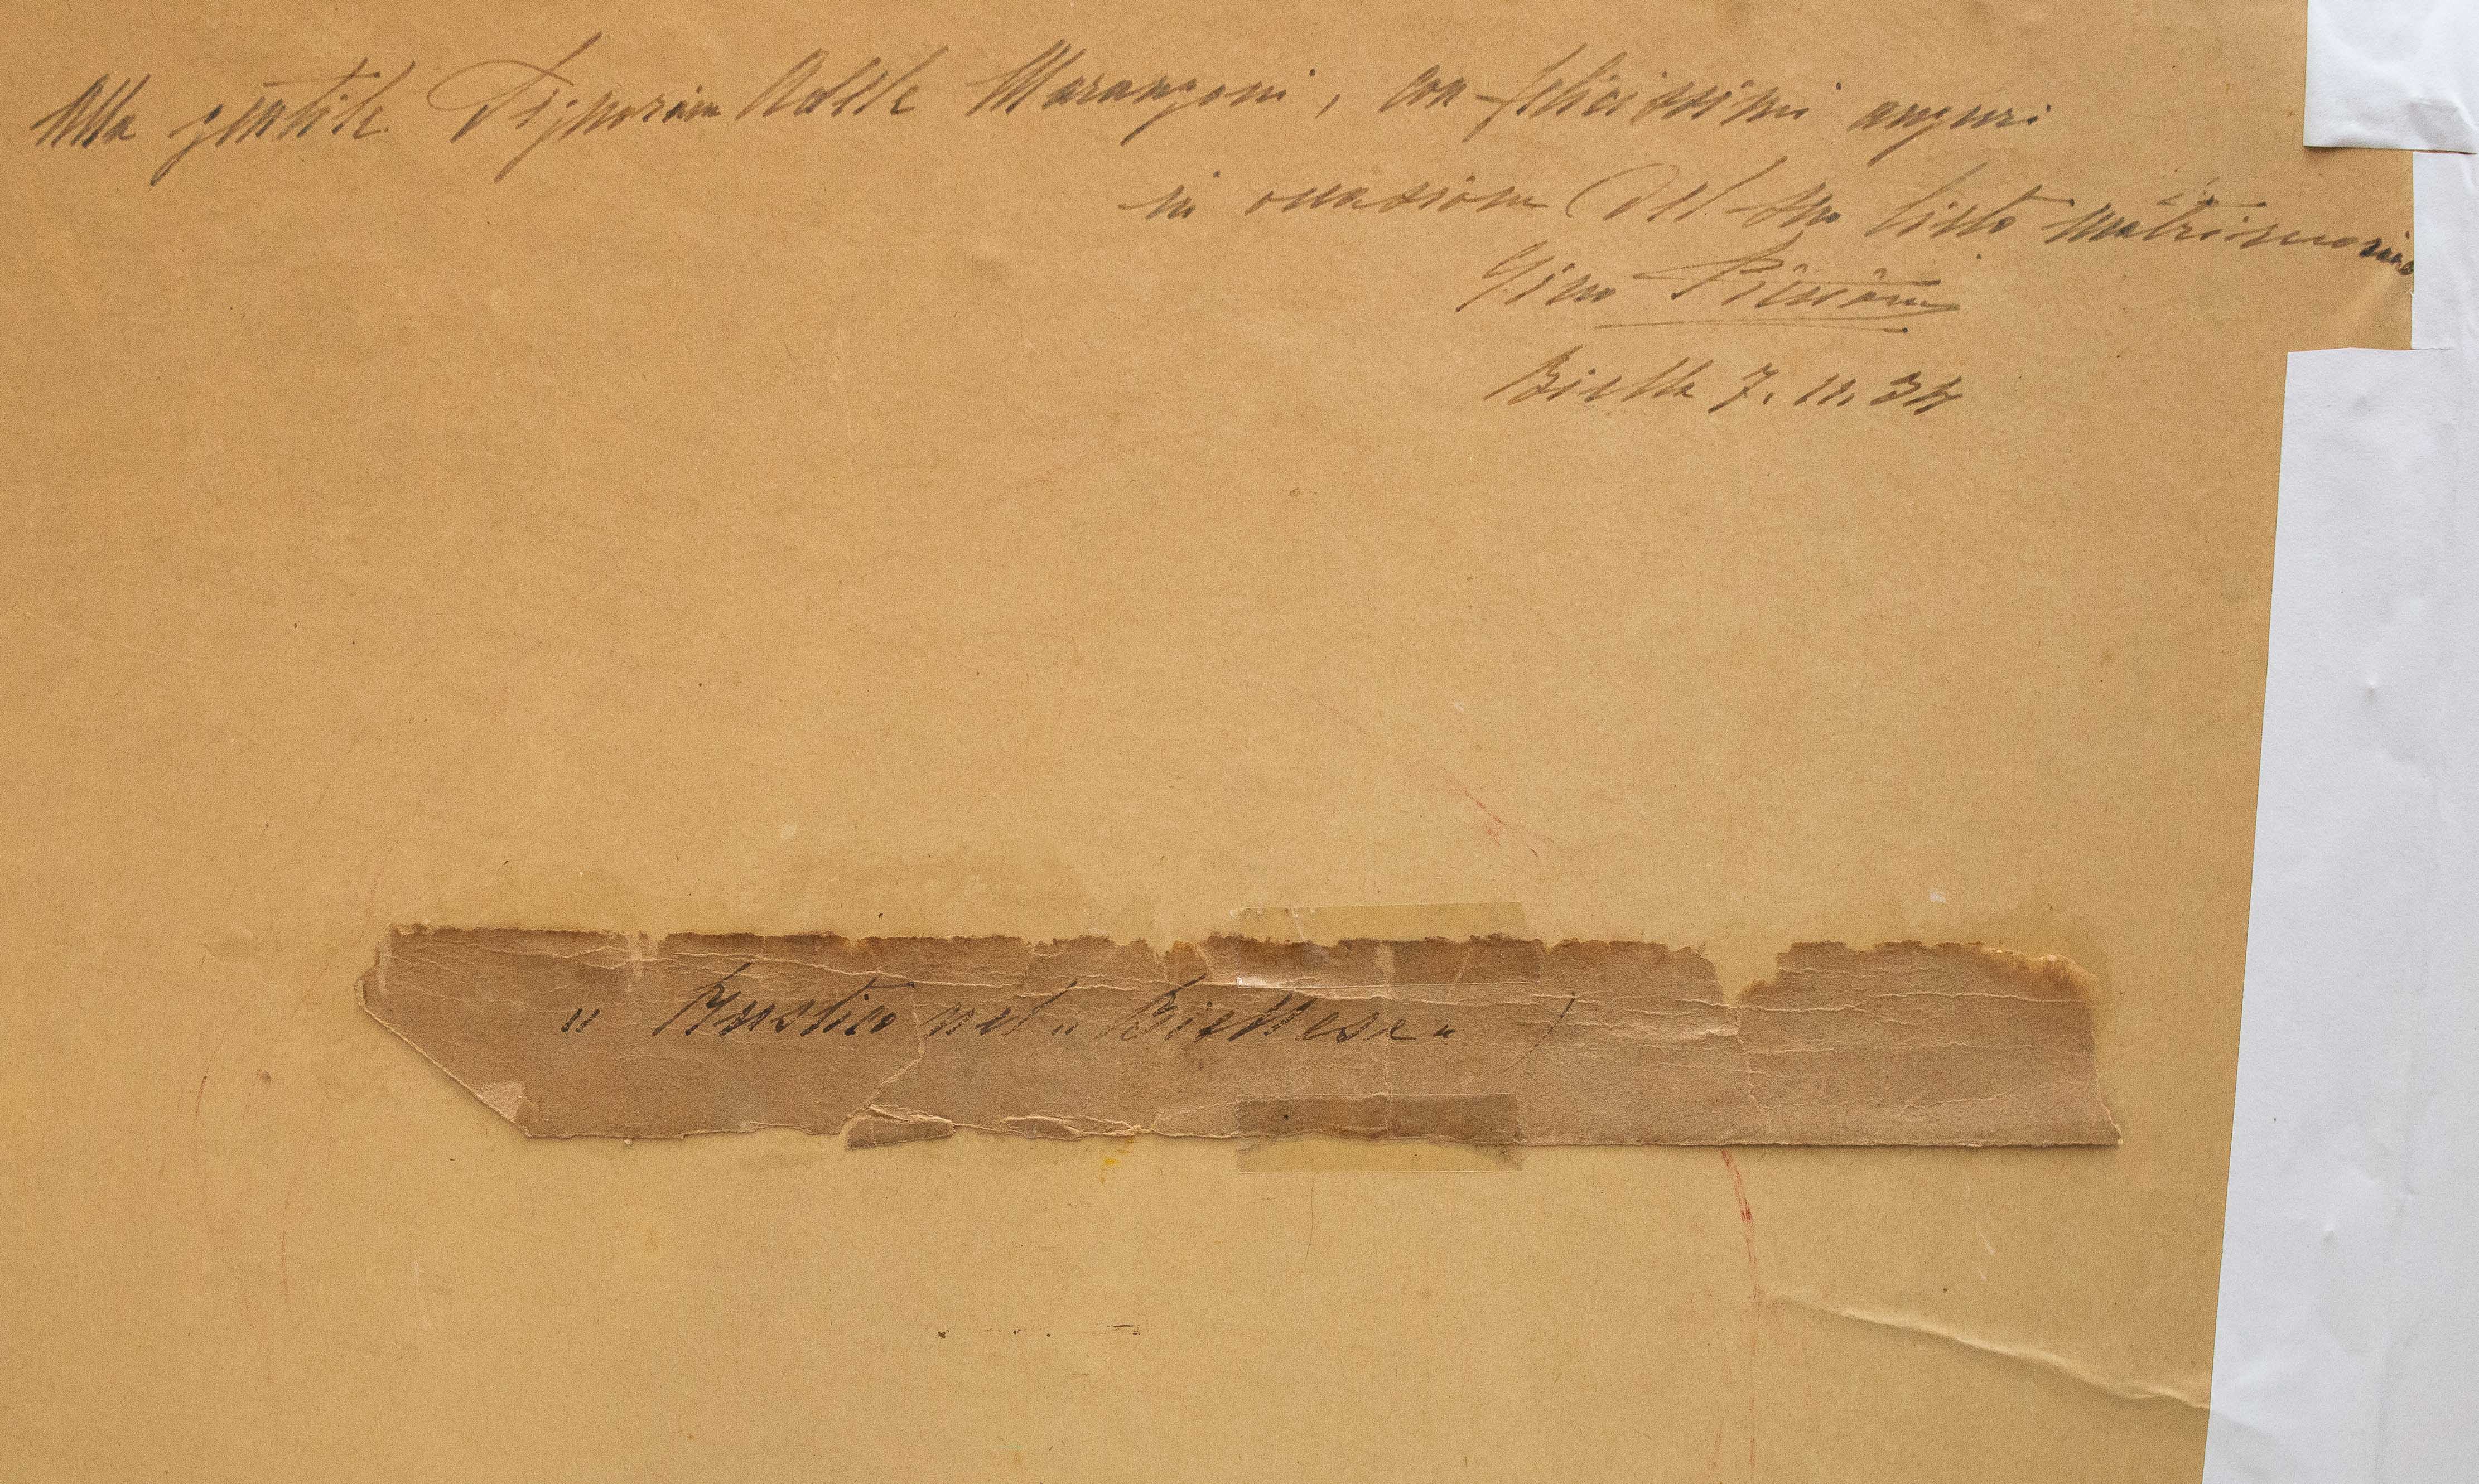 Alla gentile Signorina Adele Marangoni, con felicissimi auguri
in occasione del suo lieto matrimonio
Gino
Biella 7. 11. 34
" Rustico nel " Biellese "